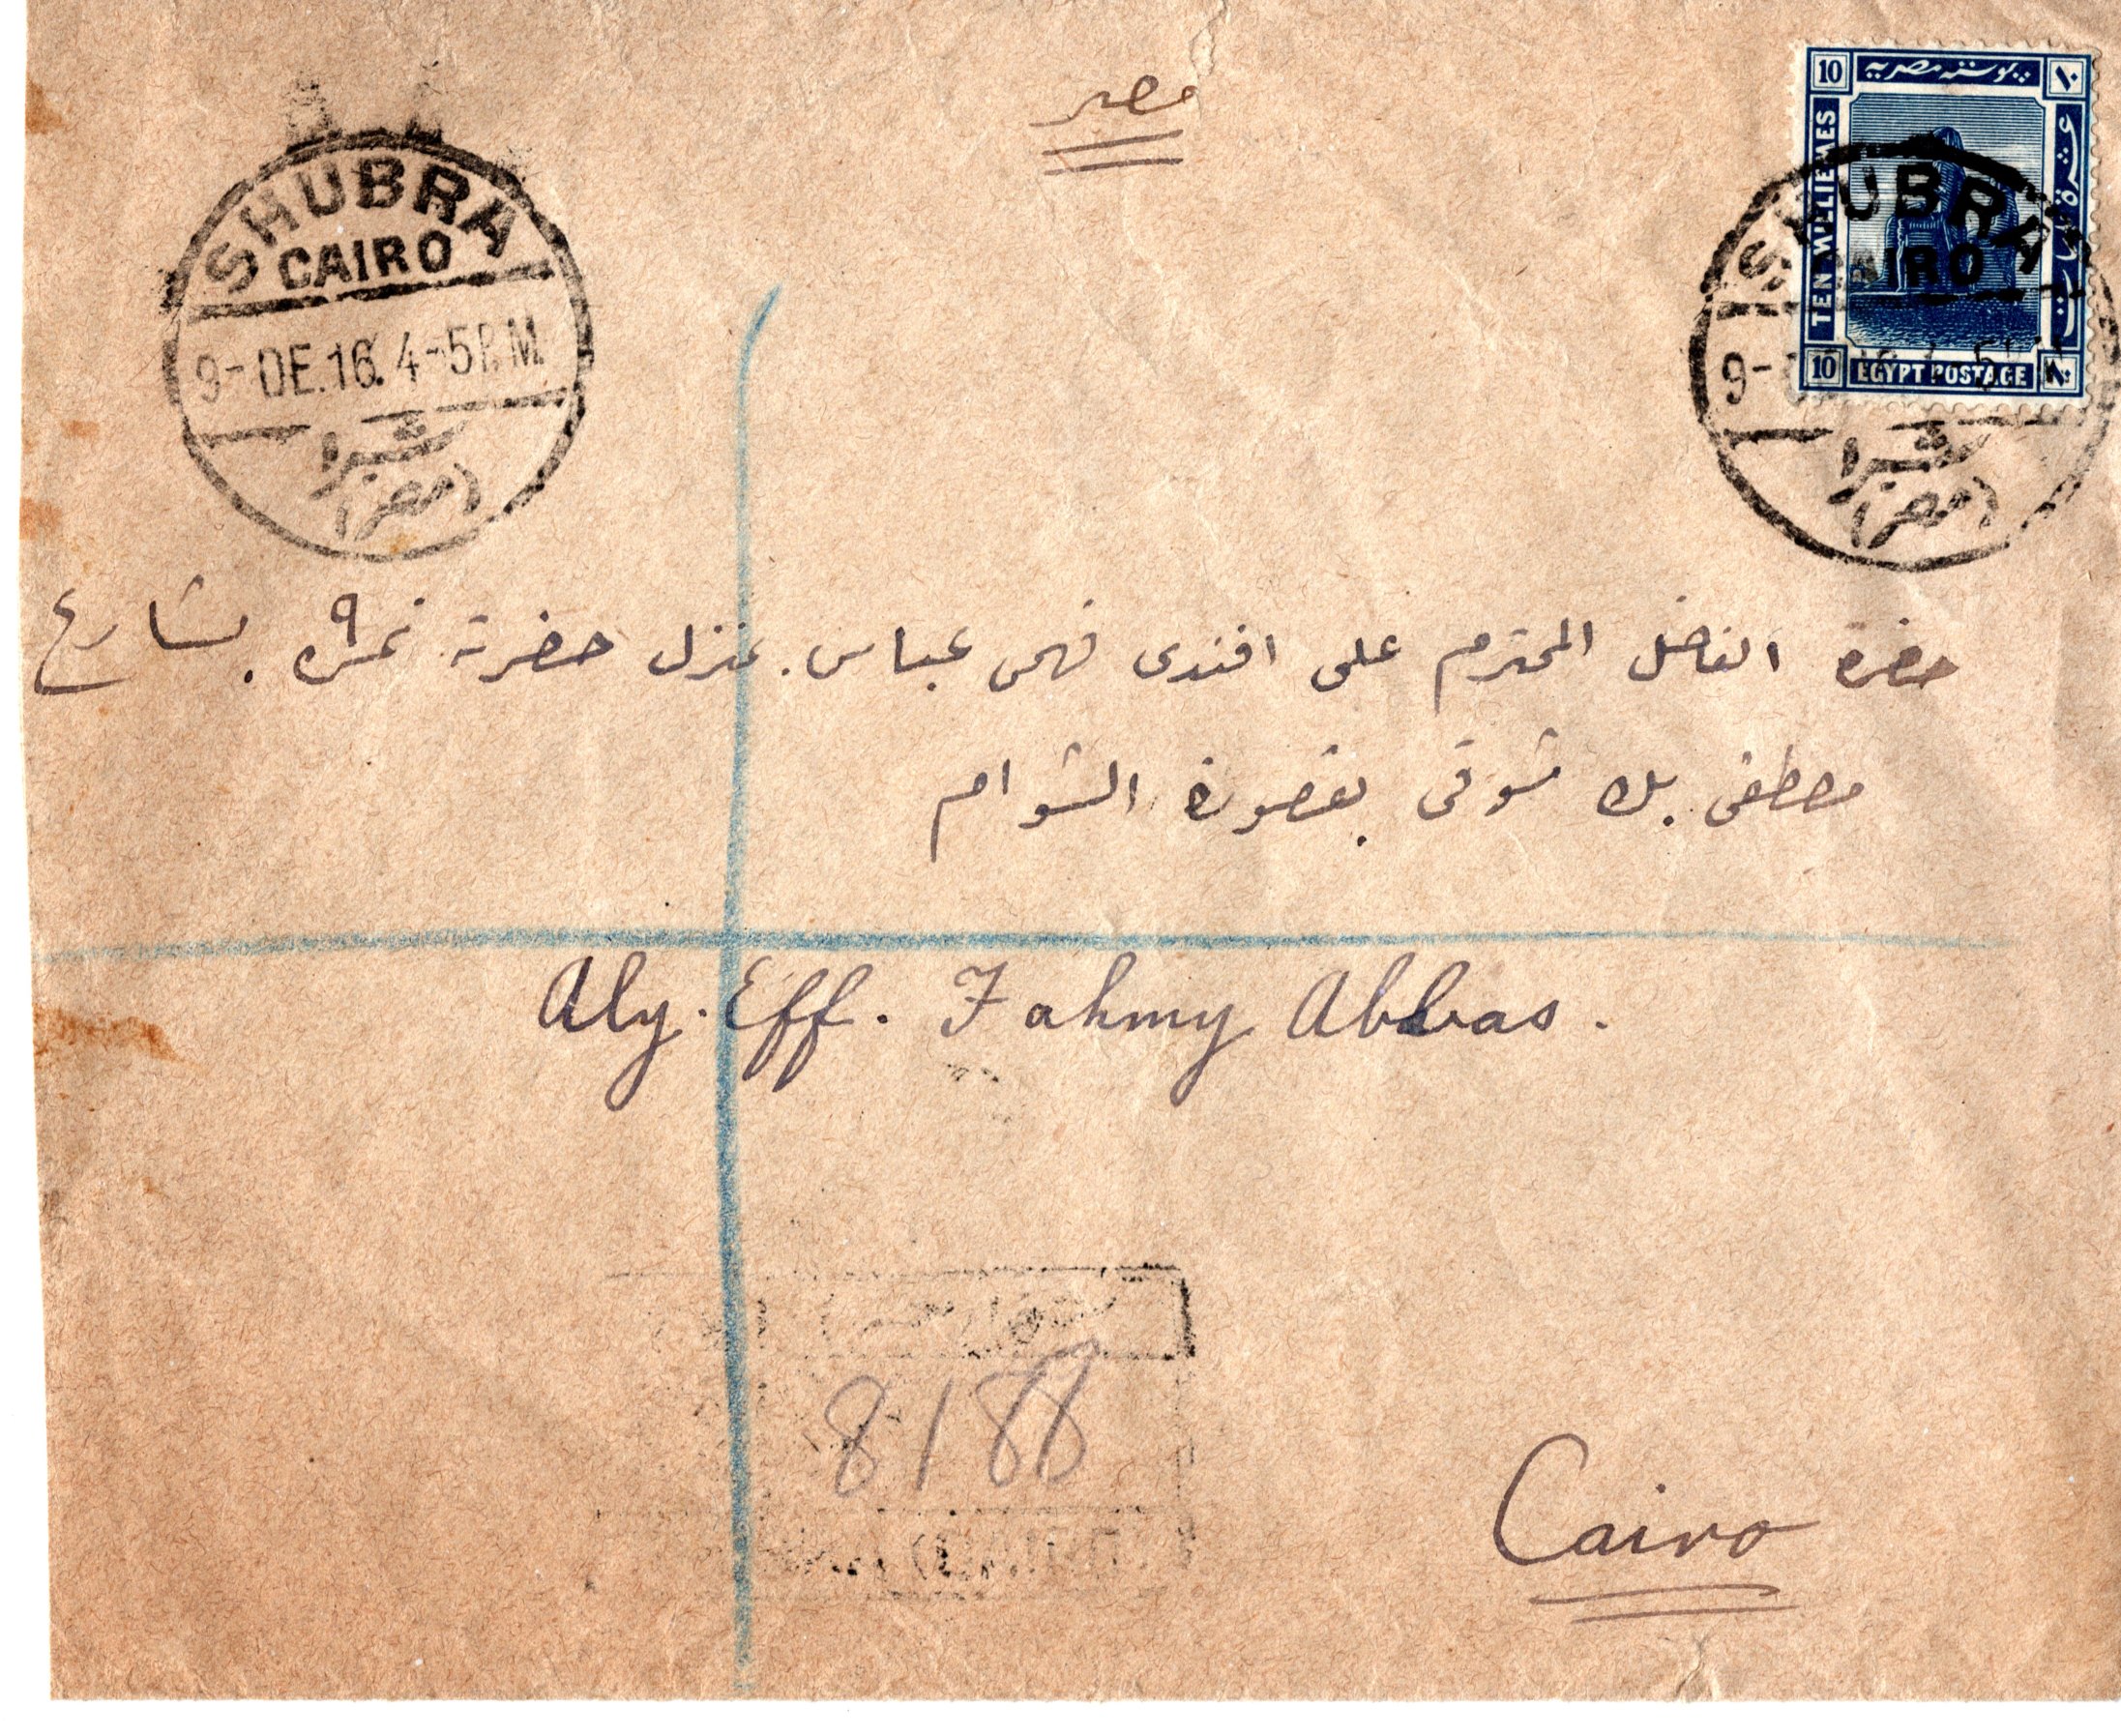 مصر
10 بوستة مصرية ١٠
TEN MILLIEMES
عشرة مليمات
10 EGYPT POSTAGE ١٠
SHUBRA
CAIRO
9-DE.16.4-5P.M.
شبرا
(مصر)
SHUBRA
CAIRO
9-
شبرا
(مصر)
حضرة الفاضل المحترم على افندى فهمى عباس. بمنزل حضرته نمرة ٩ بشارع
مصطفى بك شوقى بقصورة الشوام
Aly. Eff. Fahmy Abbas.
8188
CAIRO
Cairo